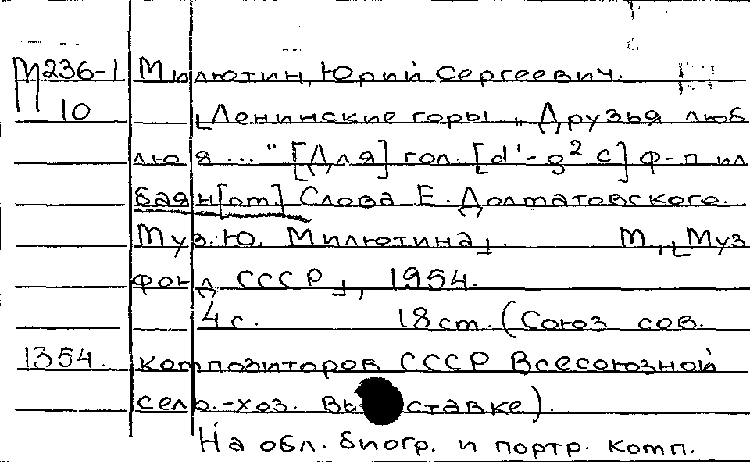 М236-1 Милютин, Юрий Сергеевич.
10 [Ленинские горы „Друзья люб
лю я..." [Для] гол. [d'-g² с] ф-п ил
баян[ом.] Слова Е. Долматовского.
Муз. Ю. Милютина] М., [Муз
фонд СССР], 1954.
4с. 18см. (Союз сов.
1354. композиторов СССР Всесоюзной
сель.-хоз. выставке).
На обл. биогр. и портр. комп.